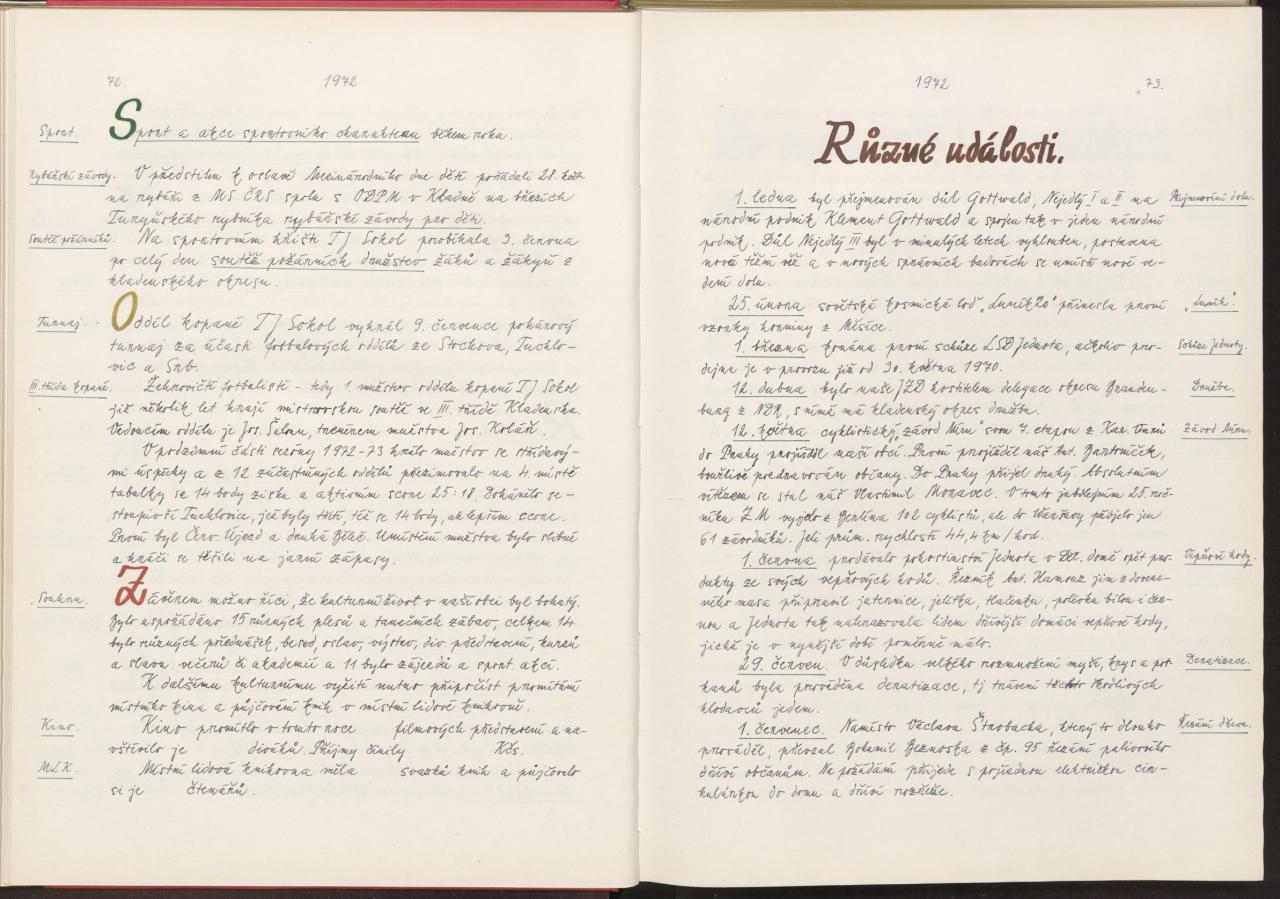 72.
1972
Sport.
Sport a akce sportovního charakteru během roku.
Rybářské závody.
V předstihu k oslavě Mezinárodního dne dětí pořádali 28. května
na rybáři z MS ČRS spolu s ODPM v Kladně na březích
Turyňského rybníka rybářské závody pro děti.
Soutěž požárníků.
Na sportovním hřišti TJ Sokol probíhala 3. června
po celý den soutěž požárních družstev žáků a žákyň z
kladenského okresu.
Turnaj.
Oddíl kopané TJ Sokol vyhrál 9. července pohárový
turnaj za účasti fotbalových oddílů ze Stochova, Tuchlo-
vic a Srb.
III. třída kopané.
Žehrovičtí fotbalisté - tedy 1. mužstvo oddílu kopané TJ Sokol
již několik let hrají mistrovskou soutěž ve III. třídě Kladenska.
Vedoucím oddílu je Jos. Šalou, trenérem mužstva Jos. Kolář.
V podzimní části sezóny 1972-73 hrálo mužstvo se střídavý-
mi úspěchy a z 12 zúčastněných oddílů přezimovalo na 4. místě
tabulky se 14 body zisku a aktivním score 25:18. Dohánilo se-
stoupivší Tuchlovice, jež byly třetí, též se 14 body, ale lepším score.
První byl Červ. Újezd a druhá Běleč. Umístění mužstva bylo slibné
a hráči se těšili na jarní zápasy.
Souhrn.
Závěrem možno říci, že kulturní život v naší obci byl bohatý.
Bylo uspořádáno 15 různých plesů a tanečních zábav, celkem 14
bylo různých přednášek, besed, oslav, výstav, div. představení, kurzů
a slavn. večerů či akademií a 11 bylo zájezdů a sport. akcí.
K dalšímu kulturnímu vyžití nutno připočíst promítání
místního kina a půjčování knih v místní lidové knihovně.
Kino.
Kino promítlo v tomto roce filmových představení a na-
vštívilo je diváků. Příjmy činily Kčs.
MLK.
Místní lidová knihovna měla svazků knih a půjčovalo
si je čtenářů.
1972
73.
Různé události.
1. ledna byl přejmenován důl Gottwald, Nejedlý I a II na
Přejmenování dolu.
národní podnik Klement Gottwald a spojen tak v jeden národní
podnik. Důl Nejedlý III byl v minulých letech vyhlouben, postavena
nová těžní věž a v nových správních budovách se umístí nové ve-
dení dolu.
25. února sovětská kosmická loď "Luník 20" přinesla první
"Luník".
vzorky horniny z Měsíce.
1. března konána první schůze LSD Jednota, ačkoliv pro-
Schůze Jednoty.
dejna je v provozu již od 30. května 1970.
12. dubna bylo naše JZD hostitelem delegace okresu Branden-
Družba.
burg z NDR, s nímž má kladenský okres družbu.
12. května cyklistický "závod Míru" svou 7. etapou z Kar. Varů
Závod Míru.
do Prahy projížděl naší obcí. První projížděl náš Ant. Bartoníček,
bouřlivě pozdravován občany. Do Prahy přijel druhý. Absolutním
vítězem se stal náš Vlastimil Moravec. V tomto jubilejním 25. roč-
níku ZM vyjelo z Berlína 102 cyklistů, ale do Waršavy přijelo jen
61 závodníků. Jeli prům. rychlostí 44,4 km/hod.
1. června prodávalo pohostinství Jednota v Děl. domě opět pro-
Vepřové hody.
dukty ze svých vepřových hodů. Řezník Ant. Hamouz jim z dovezen-
ného masa připravil jaternice, jelítka, tlačenku, polévku bílou i čer-
nou a Jednota tak nahrazovala lidem dřívější domácí vepřové hody,
jichž je v nynější době poměrně málo.
29. červen. V důsledku velkého rozmnožení myší, krys a pot-
Deratizace.
kanů byla prováděna deratizace, tj trávení těchto škodlivých
hlodavců jedem.
1. červenec. Namísto Václava Štrobacha, který to dlouho
Řezání dřeva.
prováděl, převzal Bohumil Beznoska z čp. 95 řezání palivového
dříví občanům. Na požádání přijede s pojízdnou elektrickou cir-
kulárkou do domu a dříví rozřeže.